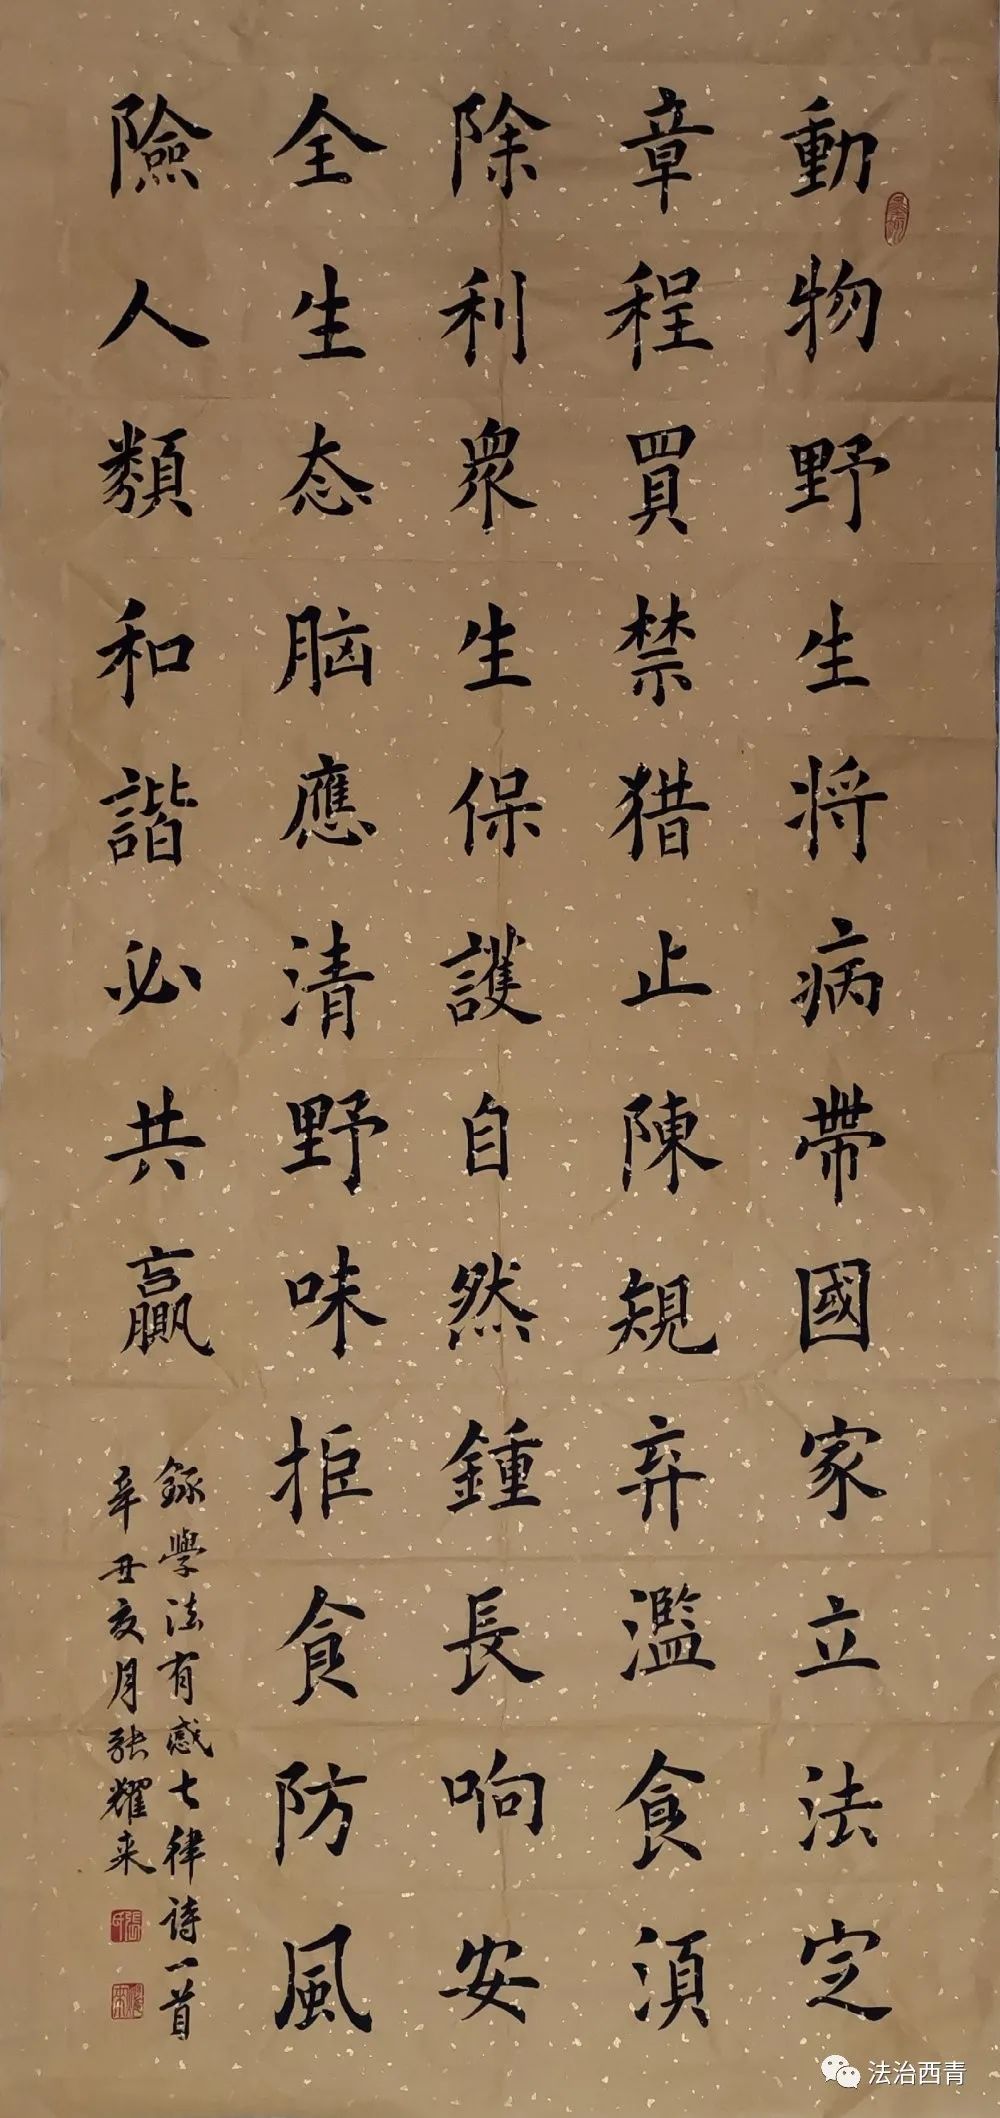 動物野生将病帶國家立法定
章程買禁猎止陳規弃濫食須
除利衆生保護自然鍾長响安
全生态脑應清野味拒食防風
險人類和諧必共贏
録學法有感七律詩一首
辛丑亥月張耀来
法治西青